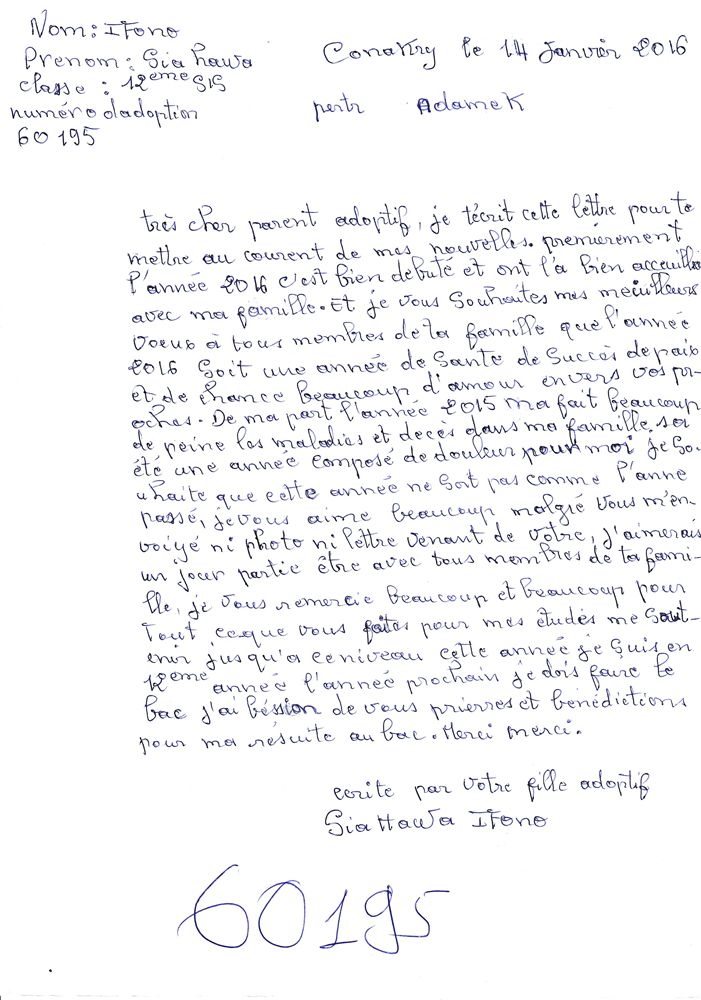 Nom: IFono
Conakry le 14 Janvier 2016
Prenom: Sia hawa
classe: 12eme SIS
numéro dadoption
60195
pertr Adamek
très cher parent adoptif, je técrit cette lettre pour te
mettre au courent de mes nouvelles. premièrement
l'année 2016 c'est bien debuté et ont l'a bien acceuillu
avec ma famille. Et je vous Souhaites mes meuilleurs
voeux à tous membres de ta famille que l'année
2016 Soit une année de Sante de Succès de paix
et de chance beaucoup d'amour envers vos pr-
oches. De ma part l'année 2015 ma fait beaucoup
de peine les maladies et decès dans ma famille, sa
été une année composé de douleur pour moi je So-
uhaite que cette année ne Soit pas comme l'anne
passé, je vous aime beaucoup malgré vous m'en-
voiyé ni photo ni lettre venant de votre, j'aimerais
un jour partie être avec tous membres de ta fami-
lle, je vous remercie beaucoup et beaucoup pour
tout ceque vous faites pour mes études me Sout-
enir jusqu'a ceniveau cette année je Suis en
12eme année l'année prochain je dois faire le
bac j'ai béssion de vous prierres et benédictions
pour ma résuite au bac. Merci merci.
ecrite par votre fille adoptif
Sia Hawa IFono
60195